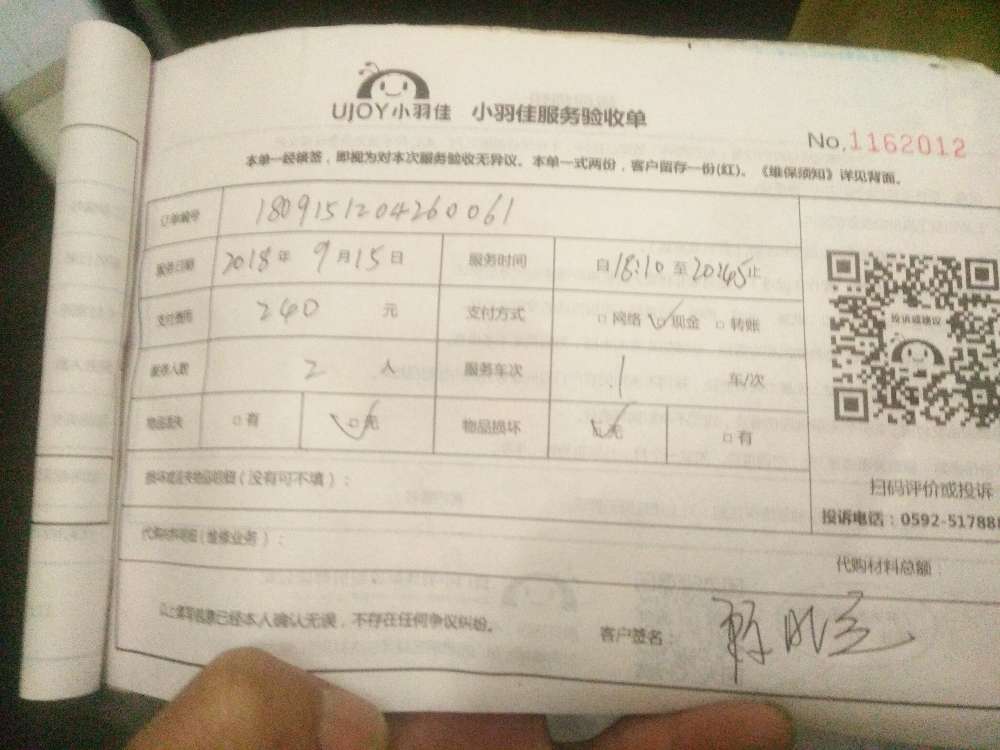 UJOY小羽佳 小羽佳服务验收单
No.1162012
本单一经填签，即视为对本次服务验收无异议。本单一式两份，客户留存一份(红)。《维保须知》详见背面。
订单编号 1809151204260061
服务日期 2018年9月15日 服务时间 自18:10至20:45止
支付费用 240 元 支付方式 □网络 ☑现金 □转账
服务人数 2 人 服务车次 1 车/次
物品丢失 □有 ☑无 物品损坏 ☑无 □有
投诉或建议
损坏或丢失物品明细(没有可不填)：
扫码评价或投诉
投诉电话：0592-517888
代购材料明细(维修业务)：
代购材料总额：
以上填写信息已经本人确认无误，不存在任何争议纠纷。
客户签名：